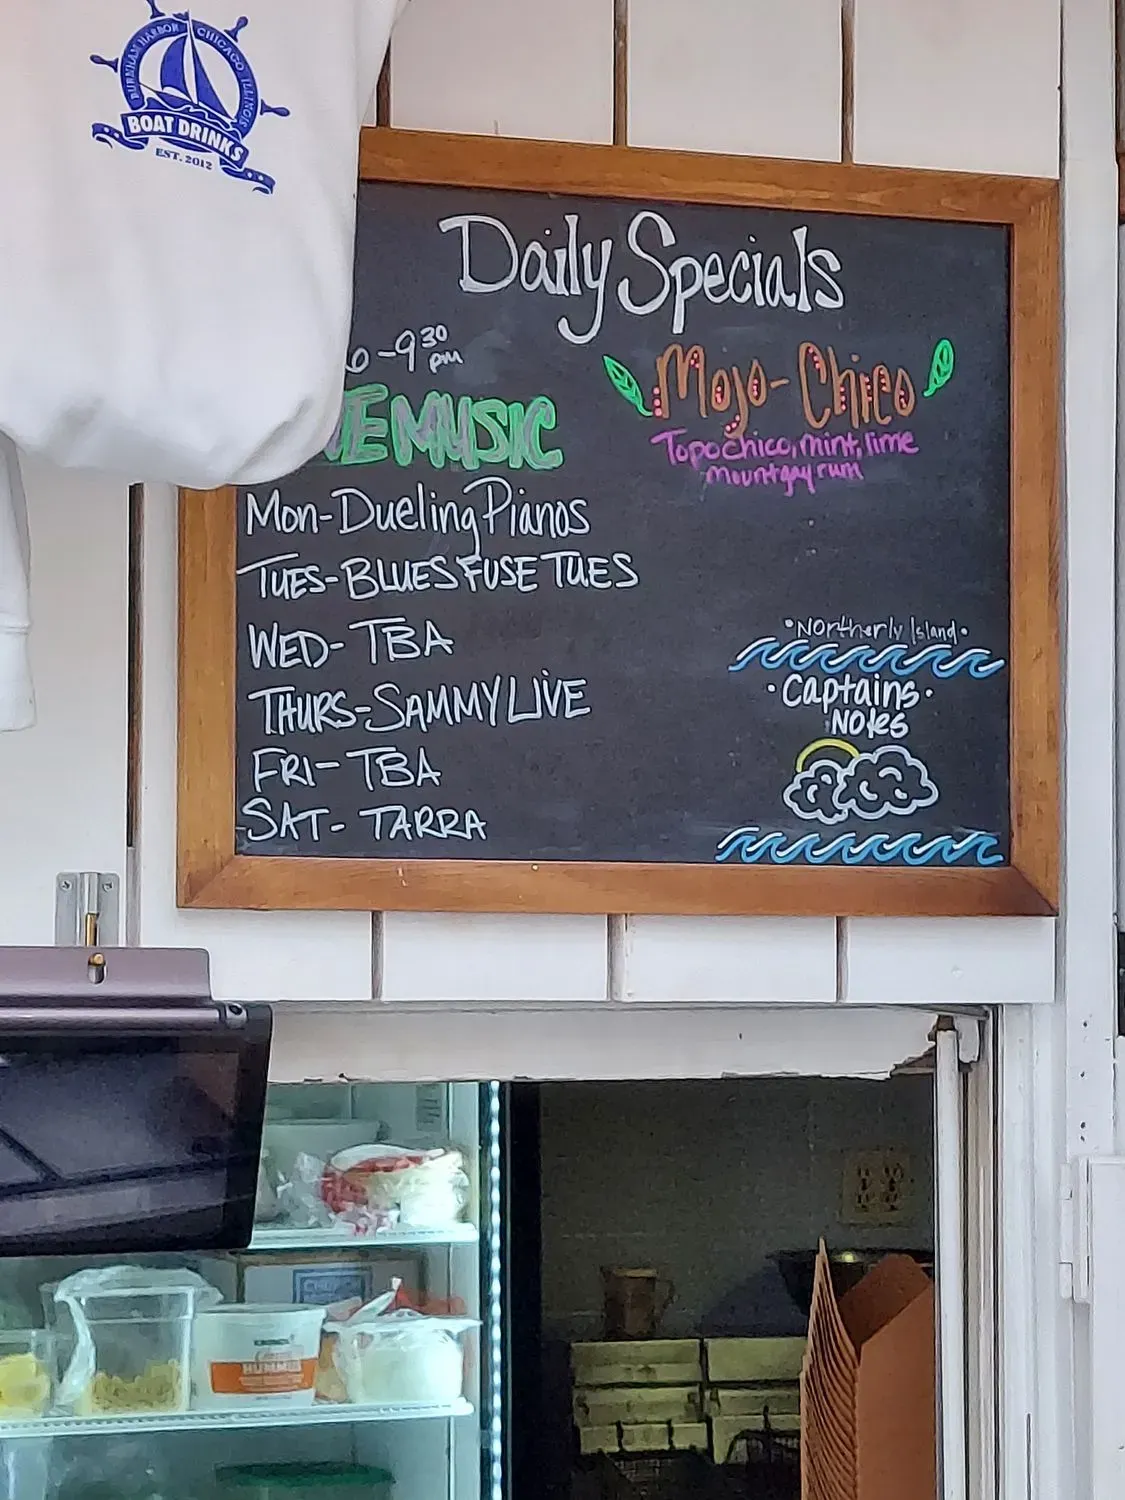 BURNHAM HARBOR CHICAGO ILLINOIS
BOAT DRINKS
EST. 2012
Daily Specials
6-9³⁰ pm
VE MUSIC
Mon-Dueling Pianos
TUES-BLUES FUSE TUES
WED-TBA
THURS-SAMMY LIVE
FRI-TBA
SAT-TARRA
Mojo-Chico
Topochico, mint, lime
mountgay rum
•Northerly Island•
•Captains•
Notes
HUMMUS